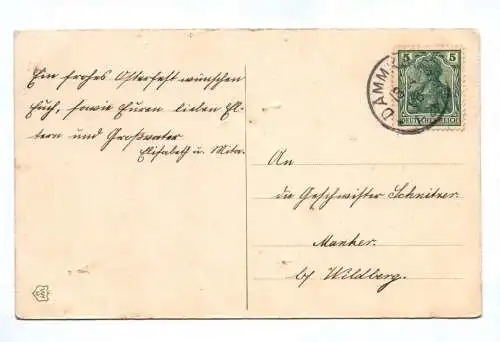 Ein frohes Osterfest wünschen
Euch, sowie Euren lieben El-
tern und Großvater
Elisabeth u. Mita.
5 5
DEUTSCHES REICH
DAMM
An
die Geschwister Schnitzer.
Manker.
b/ Wildberg.